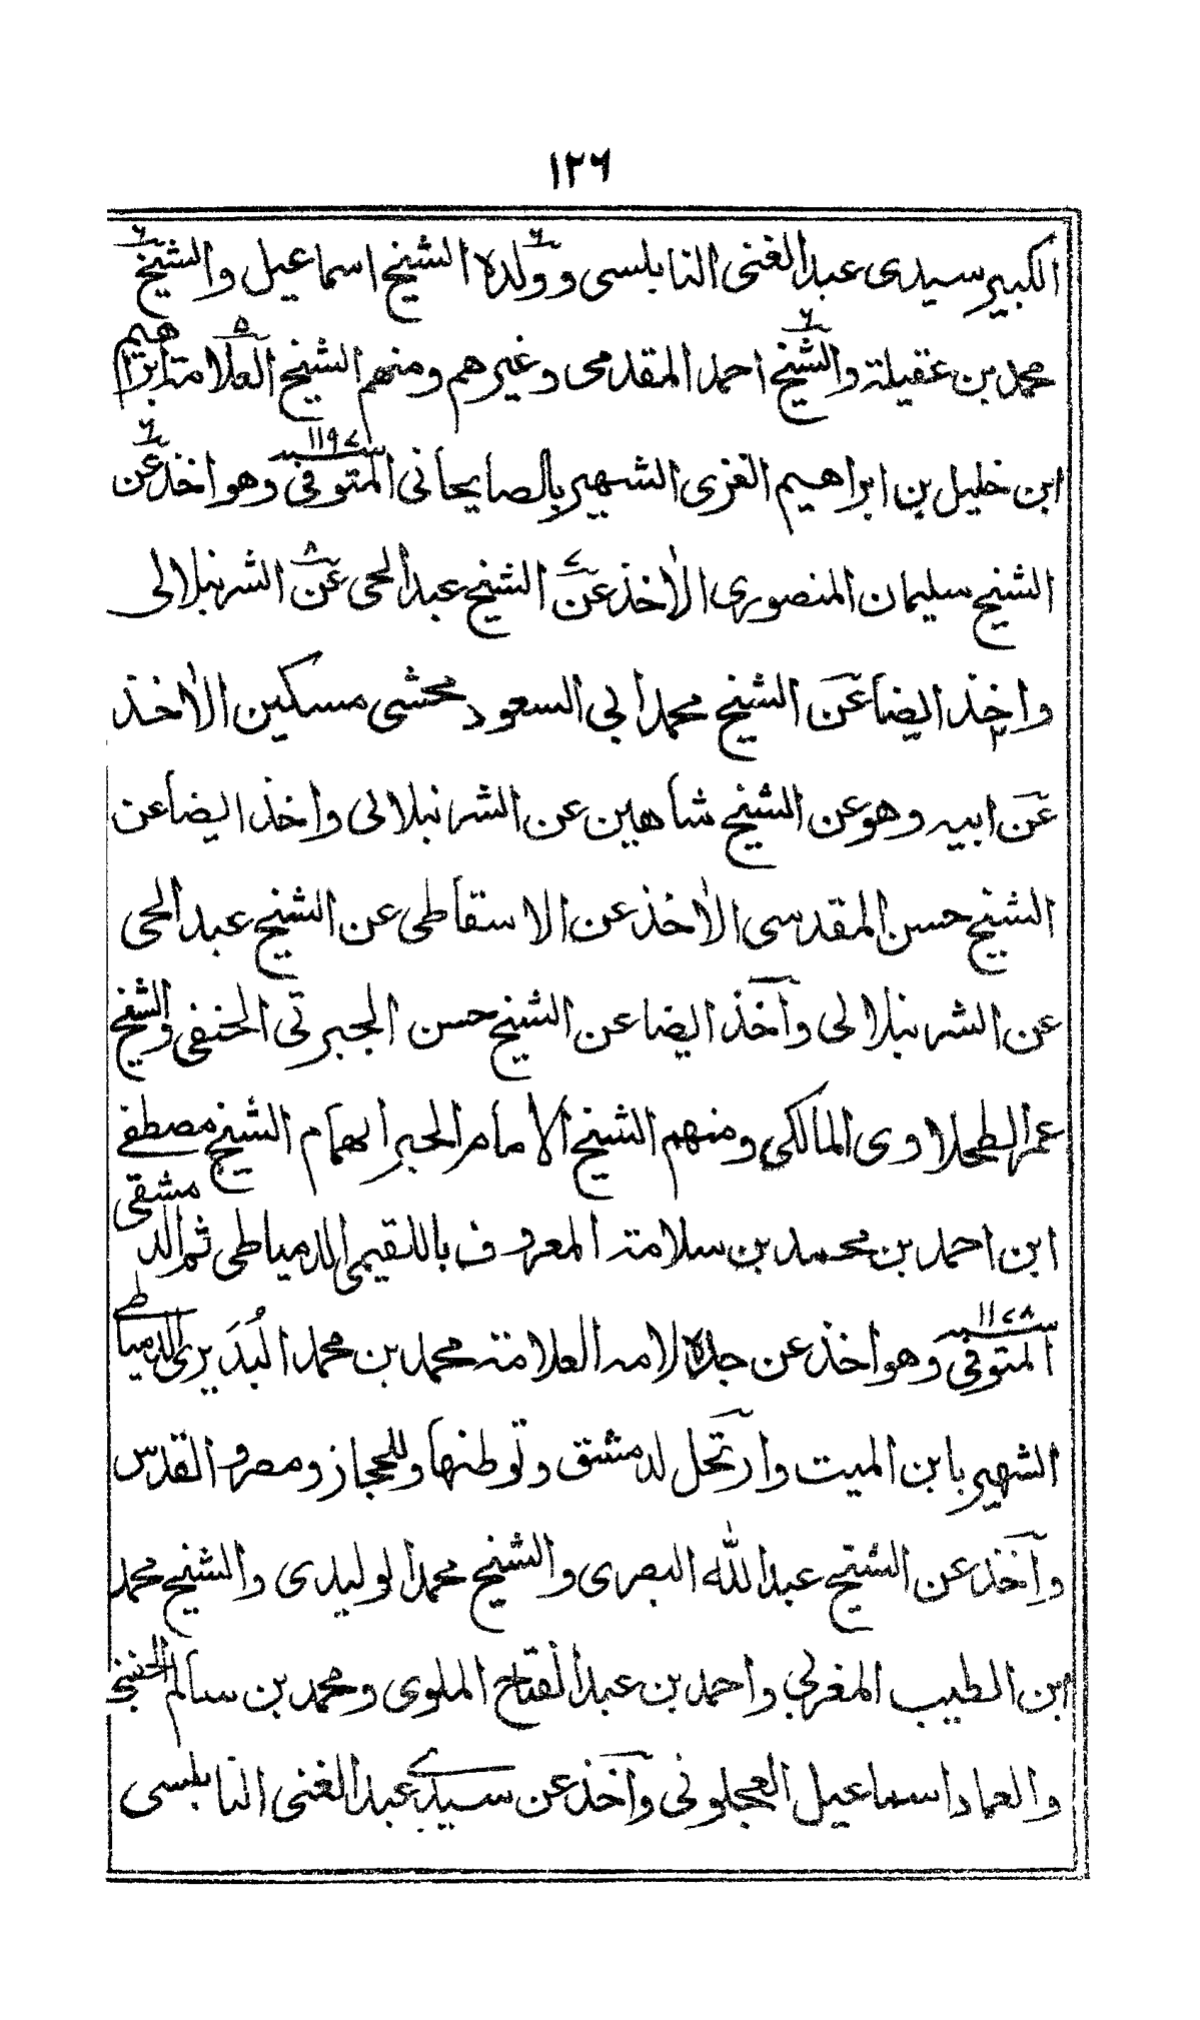 ١٢٦
الكبير سيدى عبد الغنى النابلسى وولده الشيخ اسماعيل والشيخ
محمد بن عقيلة والشيخ احمد المقدمى وغيرهم ومنهم الشيخ العلامة ابراهيم
ابن خليل بن ابراهيم الغزى الشهير بالصايحانى المتوفى سنة ١١٩٧ وهو اخذ عن
الشيخ سليمان المنصورى الآخذ عن الشيخ عبد الحى عن الشرنبلالى
واخذ ايضا عن الشيخ محمد ابى السعود محشى مسكين الآخذ
عن ابيه وهو عن الشيخ شاهين عن الشرنبلالى واخذ ايضا عن
الشيخ حسن المقدسى الآخذ عن الاسقاطى عن الشيخ عبد الحى
عن الشرنبلالى وآخذ ايضا عن الشيخ حسن الجبرتى الحنفى والشيخ
عمر الطحلاوى المالكى ومنهم الشيخ الامام الحبر الهمام الشيخ مصطفى
ابن احمد بن محمد بن سلامة المعروف باللقيمى الدمياطى ثم الدمشقى
المتوفى سنة ١١٧٨ وهو اخذ عن جده لامه العلامة محمد بن محمد البُدَيرى الدمياطى
الشهير بابن الميت وارتحل لدمشق وتوطنها وللحجاز ومصر والقدس
وآخذ عن الشيخ عبد الله البصرى والشيخ محمد الوليدى والشيخ محمد
ابن الطيب المغربى واحمد بن عبد الفتاح الملوى ومحمد بن سالم الحفنى
والعماد اسماعيل العجلونى وآخذ عن سيدى عبد الغنى النابلسى